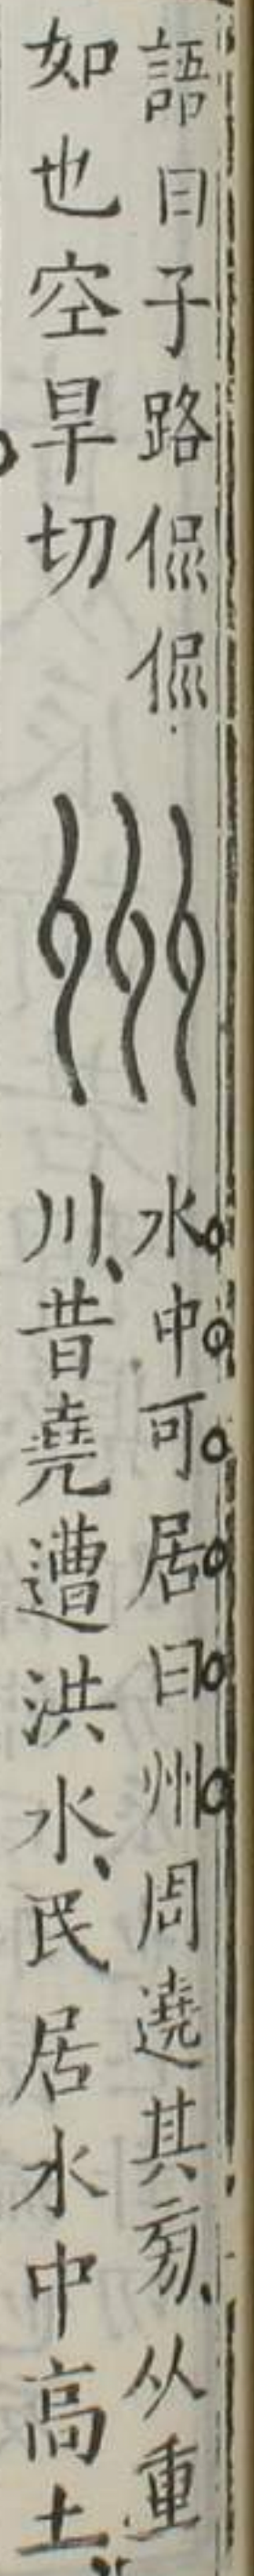 語曰子路侃侃
如也空旱切
水中可居曰州周遶其㫄从重
川昔堯遭洪水民居水中高土